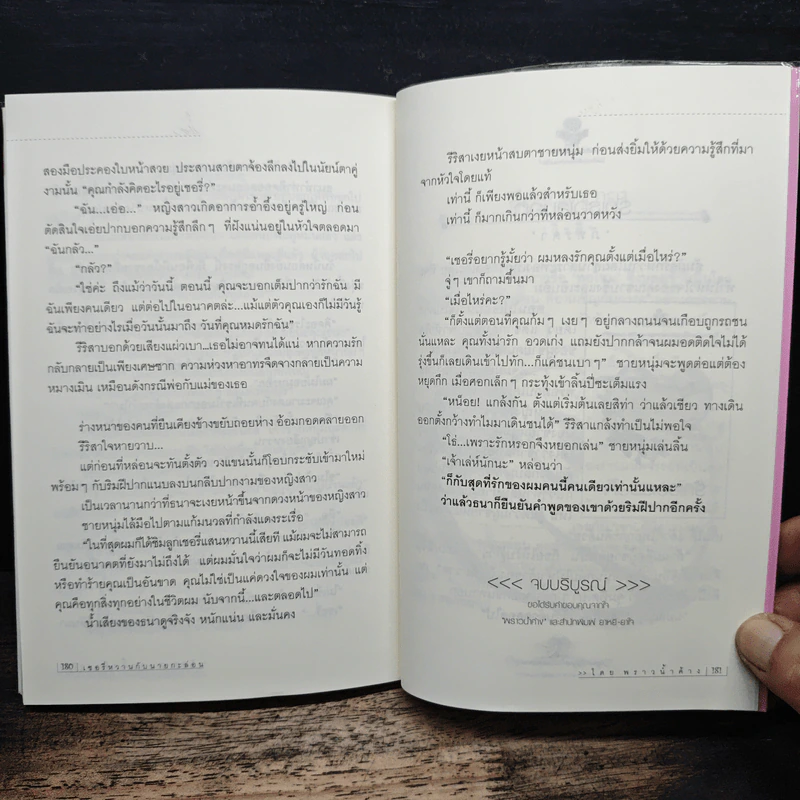 สองมือประคองใบหน้าสวย ประสานสายตาจ้องลึกลงไปในนัยน์ตาคู่
งามนั้น “คุณกำลังคิดอะไรอยู่เชอรี่?”
“ฉัน...เอ่อ...” หญิงสาวเกิดอาการอ้ำอึ้งอยู่ครู่ใหญ่ ก่อน
ตัดสินใจเอ่ยปากบอกความรู้สึกลึกๆ ที่ฝังแน่นอยู่ในหัวใจตลอดมา
“ฉันกลัว...”
“กลัว?”
“ใช่ค่ะ ถึงแม้ว่าวันนี้ ตอนนี้ คุณจะบอกเต็มปากว่ารักฉัน มี
ฉันเพียงคนเดียว แต่ต่อไปในอนาคตล่ะ...แม้แต่ตัวคุณเองก็ไม่มีวันรู้
ฉันจะทำอย่างไรเมื่อวันนั้นมาถึง วันที่คุณหมดรักฉัน”
รีริสาบอกด้วยเสียงแผ่วเบา...เธอไม่อาจทนได้แน่ หากความรัก
กลับกลายเป็นเพียงเศษซาก ความห่วงหาอาทรจืดจางกลายเป็นความ
หมางเมิน เหมือนดังกรณีพ่อกับแม่ของเธอ
ร่างหนาของคนที่ยืนเคียงข้างขยับถอยห่าง อ้อมกอดคลายออก
รีริสาใจหายวาบ...
แต่ก่อนที่หล่อนจะทันตั้งตัว วงแขนนั้นก็โอบกระชับเข้ามาใหม่
พร้อมๆ กับริมฝีปากแนบลงบนกลีบปากงามของหญิงสาว
เป็นเวลานานกว่าที่ธนาจะเงยหน้าขึ้นจากดวงหน้าของหญิงสาว
ชายหนุ่มไล้มือไปตามแก้มนวลที่กำลังแดงระเรื่อ
“ในที่สุดผมก็ได้ชิมลูกเชอรี่แสนหวานนี้เสียที แม้ผมจะไม่สามารถ
ยืนยันอนาคตที่ยังมาไม่ถึงได้ แต่ผมมั่นใจว่าผมก็จะไม่มีวันทอดทิ้ง
หรือทำร้ายคุณเป็นอันขาด คุณไม่ใช่เป็นแค่ดวงใจของผมเท่านั้น แต่
คุณคือทุกสิ่งทุกอย่างในชีวิตผม นับจากนี้...และตลอดไป”
น้ำเสียงของธนาดูจริงจัง หนักแน่น และมั่นคง
180 เชอรี่หวานกับนายกะล่อน
รีริสาเงยหน้าสบตาชายหนุ่ม ก่อนส่งยิ้มให้ด้วยความรู้สึกที่มา
จากหัวใจโดยแท้
เท่านี้ ก็เพียงพอแล้วสำหรับเธอ
เท่านี้ ก็มากเกินกว่าที่หล่อนวาดหวัง
“เชอรี่อยากรู้มั้ยว่า ผมหลงรักคุณตั้งแต่เมื่อไหร่?”
จู่ๆ เขาก็ถามขึ้นมา
“เมื่อไหร่คะ?”
“ก็ตั้งแต่ตอนที่คุณก้มๆ เงยๆ อยู่กลางถนนจนเกือบถูกรถชน
นั่นแหละ คุณทั้งน่ารัก อวดเก่ง แถมยังปากกล้าจนผมอดติดใจไม่ได้
รุ่งขึ้นก็เลยเดินเข้าไปทัก...ก็แค่ชนเบาๆ” ชายหนุ่มจะพูดต่อแต่ต้อง
หยุดกึก เมื่อศอกเล็กๆ กระทุ้งเข้าลิ้นปี่ซะเต็มแรง
“หน็อย! แกล้งกัน ตั้งแต่เริ่มต้นเลยสิท่า ว่าแล้วเชียว ทางเดิน
ออกตั้งกว้างทำไมมาเดินชนได้” รีริสาแกล้งทำเป็นไม่พอใจ
“โธ่...เพราะรักหรอกจึงหยอกเล่น” ชายหนุ่มเล่นลิ้น
“เจ้าเล่ห์นักนะ” หล่อนว่า
“ก็กับสุดที่รักของผมคนนี้คนเดียวเท่านั้นแหละ”
ว่าแล้วธนาก็ยืนยันคำพูดของเขาด้วยริมฝีปากอีกครั้ง
<<< จบบริบูรณ์ >>>
ขอได้รับคำขอบคุณจากใจ
“พราวน้ำค้าง” และสำนักพิมพ์ ยาหยี-ยาใจ
>> โดย พราวน้ำค้าง 181